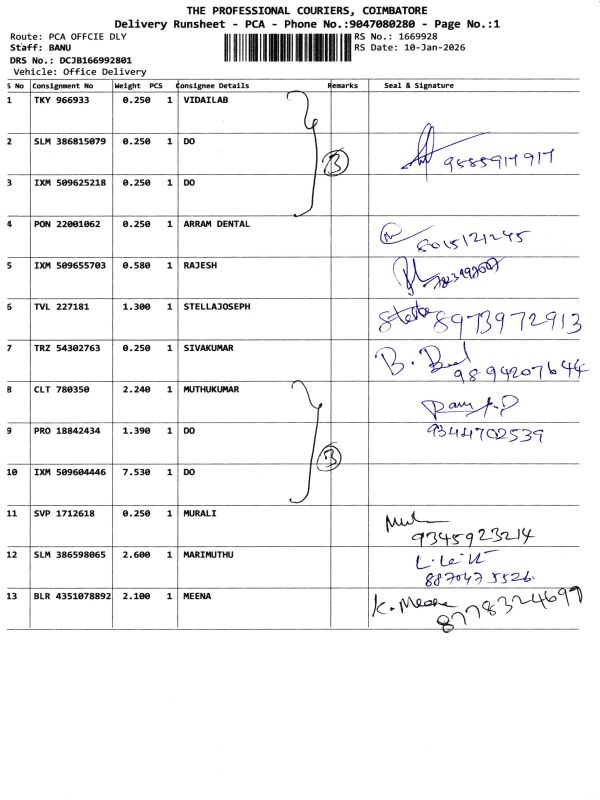 THE PROFESSIONAL COURIERS, COIMBATORE
Delivery Runsheet - PCA - Phone No.:9047080280 - Page No.:1
Route: PCA OFFCIE DLY RS No.: 1669928
Staff: BANU RS Date: 10-Jan-2026
DRS No.: DCJB166992801
Vehicle: Office Delivery
S No Consignment No Weight PCS Consignee Details Remarks Seal & Signature
1 TKY 966933 0.250 1 VIDAILAB
2 SLM 386815079 0.250 1 DO 3 9585917917
3 IXM 509625218 0.250 1 DO
4 PON 22001062 0.250 1 ARRAM DENTAL 8015121245
5 IXM 509655703 0.580 1 RAJESH
6 TVL 227181 1.300 1 STELLAJOSEPH Stella 8973972913
7 TRZ 54302763 0.250 1 SIVAKUMAR B. 9894207644
8 CLT 780350 2.240 1 MUTHUKUMAR
9 PRO 18842434 1.390 1 DO 9344702539
10 IXM 509604446 7.530 1 DO 3
11 SVP 1712618 0.250 1 MURALI
9345923214
12 SLM 386598065 2.600 1 MARIMUTHU
8870475526
13 BLR 4351078892 2.100 1 MEENA K. Meena
8778324697